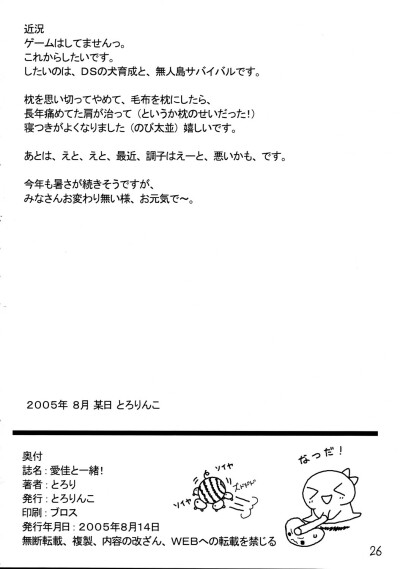 近況
ゲームはしてませんっ。
これからしたいです。
したいのは、DSの犬育成と、無人島サバイバルです。
枕を思い切ってやめて、毛布を枕にしたら、
長年痛めてた肩が治って（というか枕のせいだった！）
寝つきがよくなりました（のび太並）嬉しいです。
あとは、えと、えと、最近、調子はえーと、悪いかも、です。
今年も暑さが続きそうですが、
みなさんお変わり無い様、お元気で～。
2005年 8月 某日 とろりんこ
奥付
誌名：愛佳と一緒！
著者：とろり
発行：とろりんこ
印刷：プロス
発行年月日：2005年8月14日
無断転載、複製、内容の改ざん、WEBへの転載を禁じる
ソイヤ
ソイヤ
ズドドドド
なつだ！
26